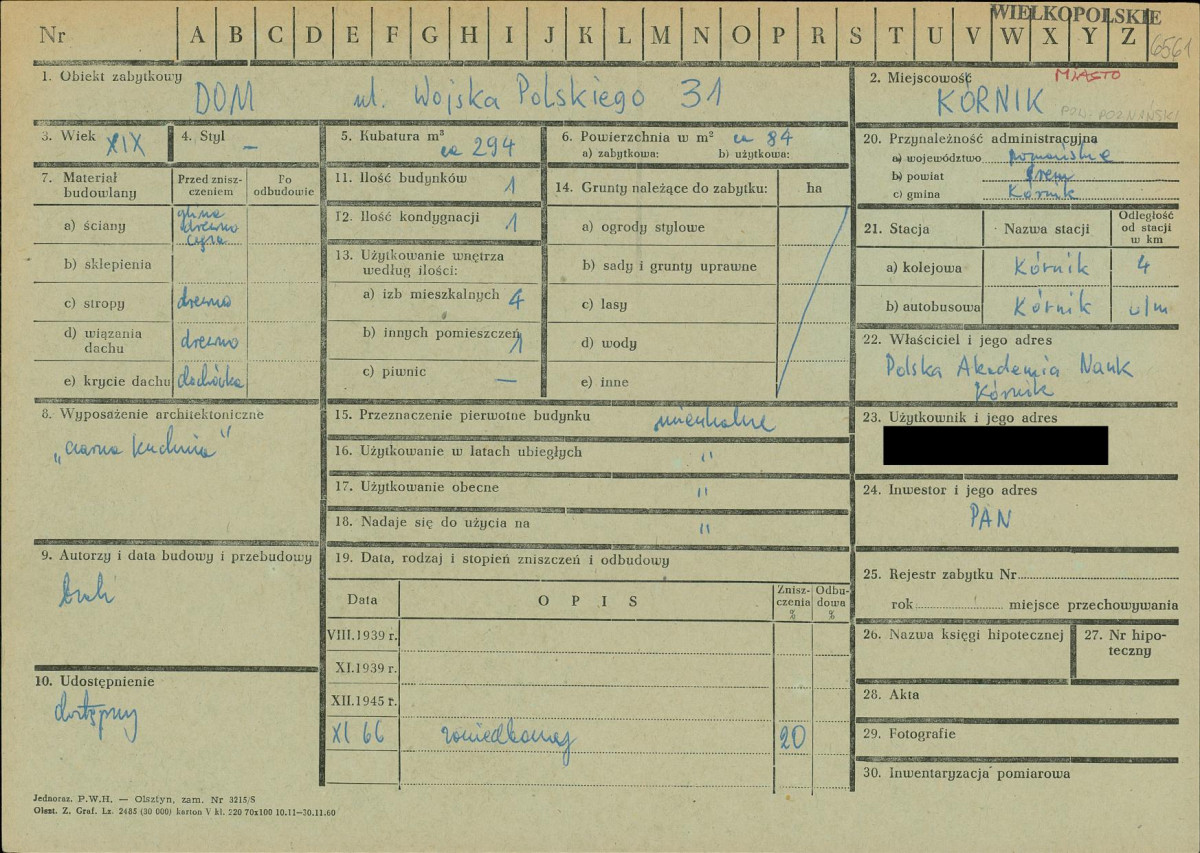 Nr A B C D E F G H I J K L M N O P R S T U V W X Y Z
WIELKOPOLSKIE
6561
1. Obiekt zabytkowy
DOM ul. Wojska Polskiego 31
2. Miejscowość
MIASTO
KÓRNIK
POW. POZNAŃSKI
3. Wiek XIX
4. Styl —
5. Kubatura m³
ca 294
6. Powierzchnia w m² ca 84
a) zabytkowa: b) użytkowa:
7. Materiał budowlany
Przed znisz-
czeniem
Po
odbudowie
a) ściany
glina
drewno
cegła
b) sklepienia
c) stropy drewno
d) wiązania
dachu drewno
e) krycie dachu dachówka
8. Wyposażenie architektoniczne
„czarna kuchnia"
9. Autorzy i data budowy i przebudowy
brak
10. Udostępnienie
dostępny
11. Ilość budynków 1
12. Ilość kondygnacji 1
13. Użytkowanie wnętrza
według ilości:
a) izb mieszkalnych 4
b) innych pomieszczeń 1
c) piwnic —
14. Grunty należące do zabytku: ha
a) ogrody stylowe
b) sady i grunty uprawne
c) lasy
d) wody
e) inne
15. Przeznaczenie pierwotne budynku mieszkalne
16. Użytkowanie w latach ubiegłych "
17. Użytkowanie obecne "
18. Nadaje się do użycia na "
19. Data, rodzaj i stopień zniszczeń i odbudowy
Data
O P I S
Znisz-
czenia
%
Odbu-
dowa
%
VIII.1939 r.
XI.1939 r.
XII.1945 r.
XI 66 20
20. Przynależność administracyjna
a) województwo poznańskie
b) powiat Śrem
c) gmina Kórnik
21. Stacja
Nazwa stacji
Odległość
od stacji
w km
a) kolejowa Kórnik 4
b) autobusowa Kórnik o/m
22. Właściciel i jego adres
Polska Akademia Nauk
Kórnik
23. Użytkownik i jego adres
24. Inwestor i jego adres
PAN
25. Rejestr zabytku Nr
rok miejsce przechowywania
26. Nazwa księgi hipotecznej
27. Nr hipo-
teczny
28. Akta
29. Fotografie
30. Inwentaryzacja pomiarowa
Jednoraz. P.W.H. — Olsztyn, zam. Nr 3215/S
Olszt. Z. Graf. Lz. 2485 (30 000) karton V kl. 220 70x100 10.11—30.11.60